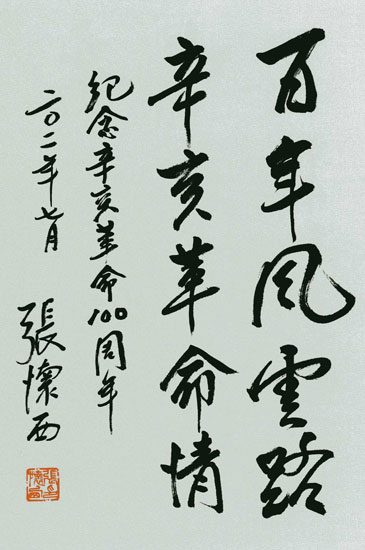 百年风雲路
辛亥革命情
纪念辛亥革命100周年
二〇一一年七月
張懷西